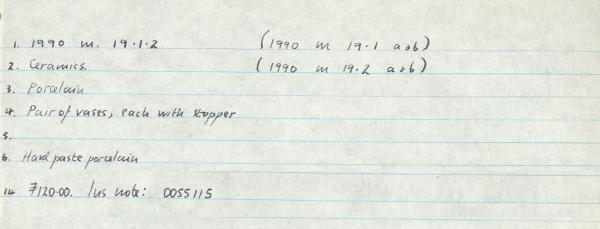 1. 1990 m. 19.1.2 (1990 m 19.1 a+b)
2. Ceramics. (1990 m 19.2 a+b)
3. Porcelain
4. Pair of vases, each with stopper
5.
6. Hard paste porcelain
14. 7120.00. Ins note: 0055115